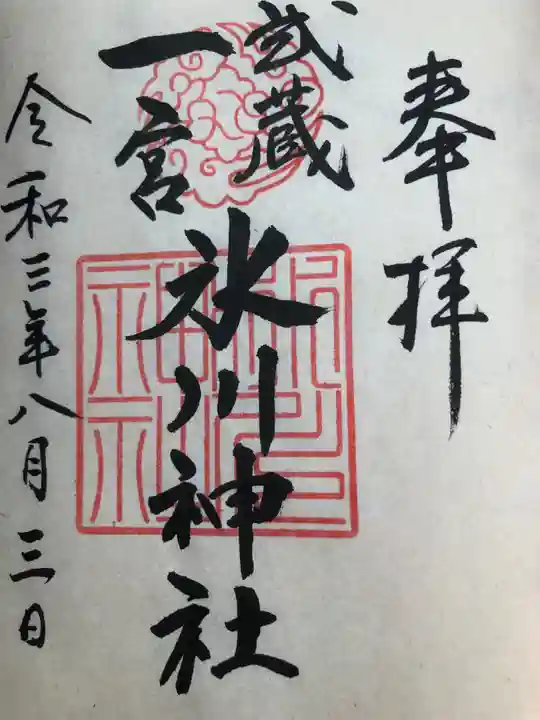 奉拝
武蔵
一宮
氷川神社
令和三年八月三日
氷川神社